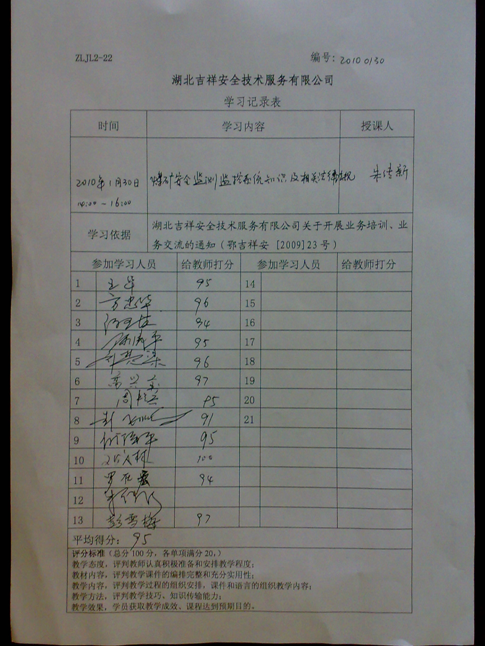 ZLJL2-22 编号：20100130
湖北吉祥安全技术服务有限公司
学习记录表
时间 学习内容 授课人
2010年1月30日 煤矿安全监测监控系统知识及相关法律法规
14:00-16:00
学习依据 湖北吉祥安全技术服务有限公司关于开展业务培训、业
务交流的通知（鄂吉祥安 [2009]23 号）
参加学习人员 给教师打分 参加学习人员 给教师打分
1 王华 95 14
2 96 15
3 94 16
4 95 17
5 96 18
6 97 19
7 95 20
8 91 21
9 95
10 100
11 94
12
13 97
平均得分：95
评分标准（总分 100 分，各单项满分 20，）
教学态度，评判教师认真积极准备和安排教学程度；
教材内容，评判教学课件的编排完整和充分实用性；
教学内容，评判教学过程的组织安排、课件和语言的组织教学内容；
教学方法，评判教学技巧、知识传输能力；
教学效果，学员获取教学成效、课程达到预期目的。